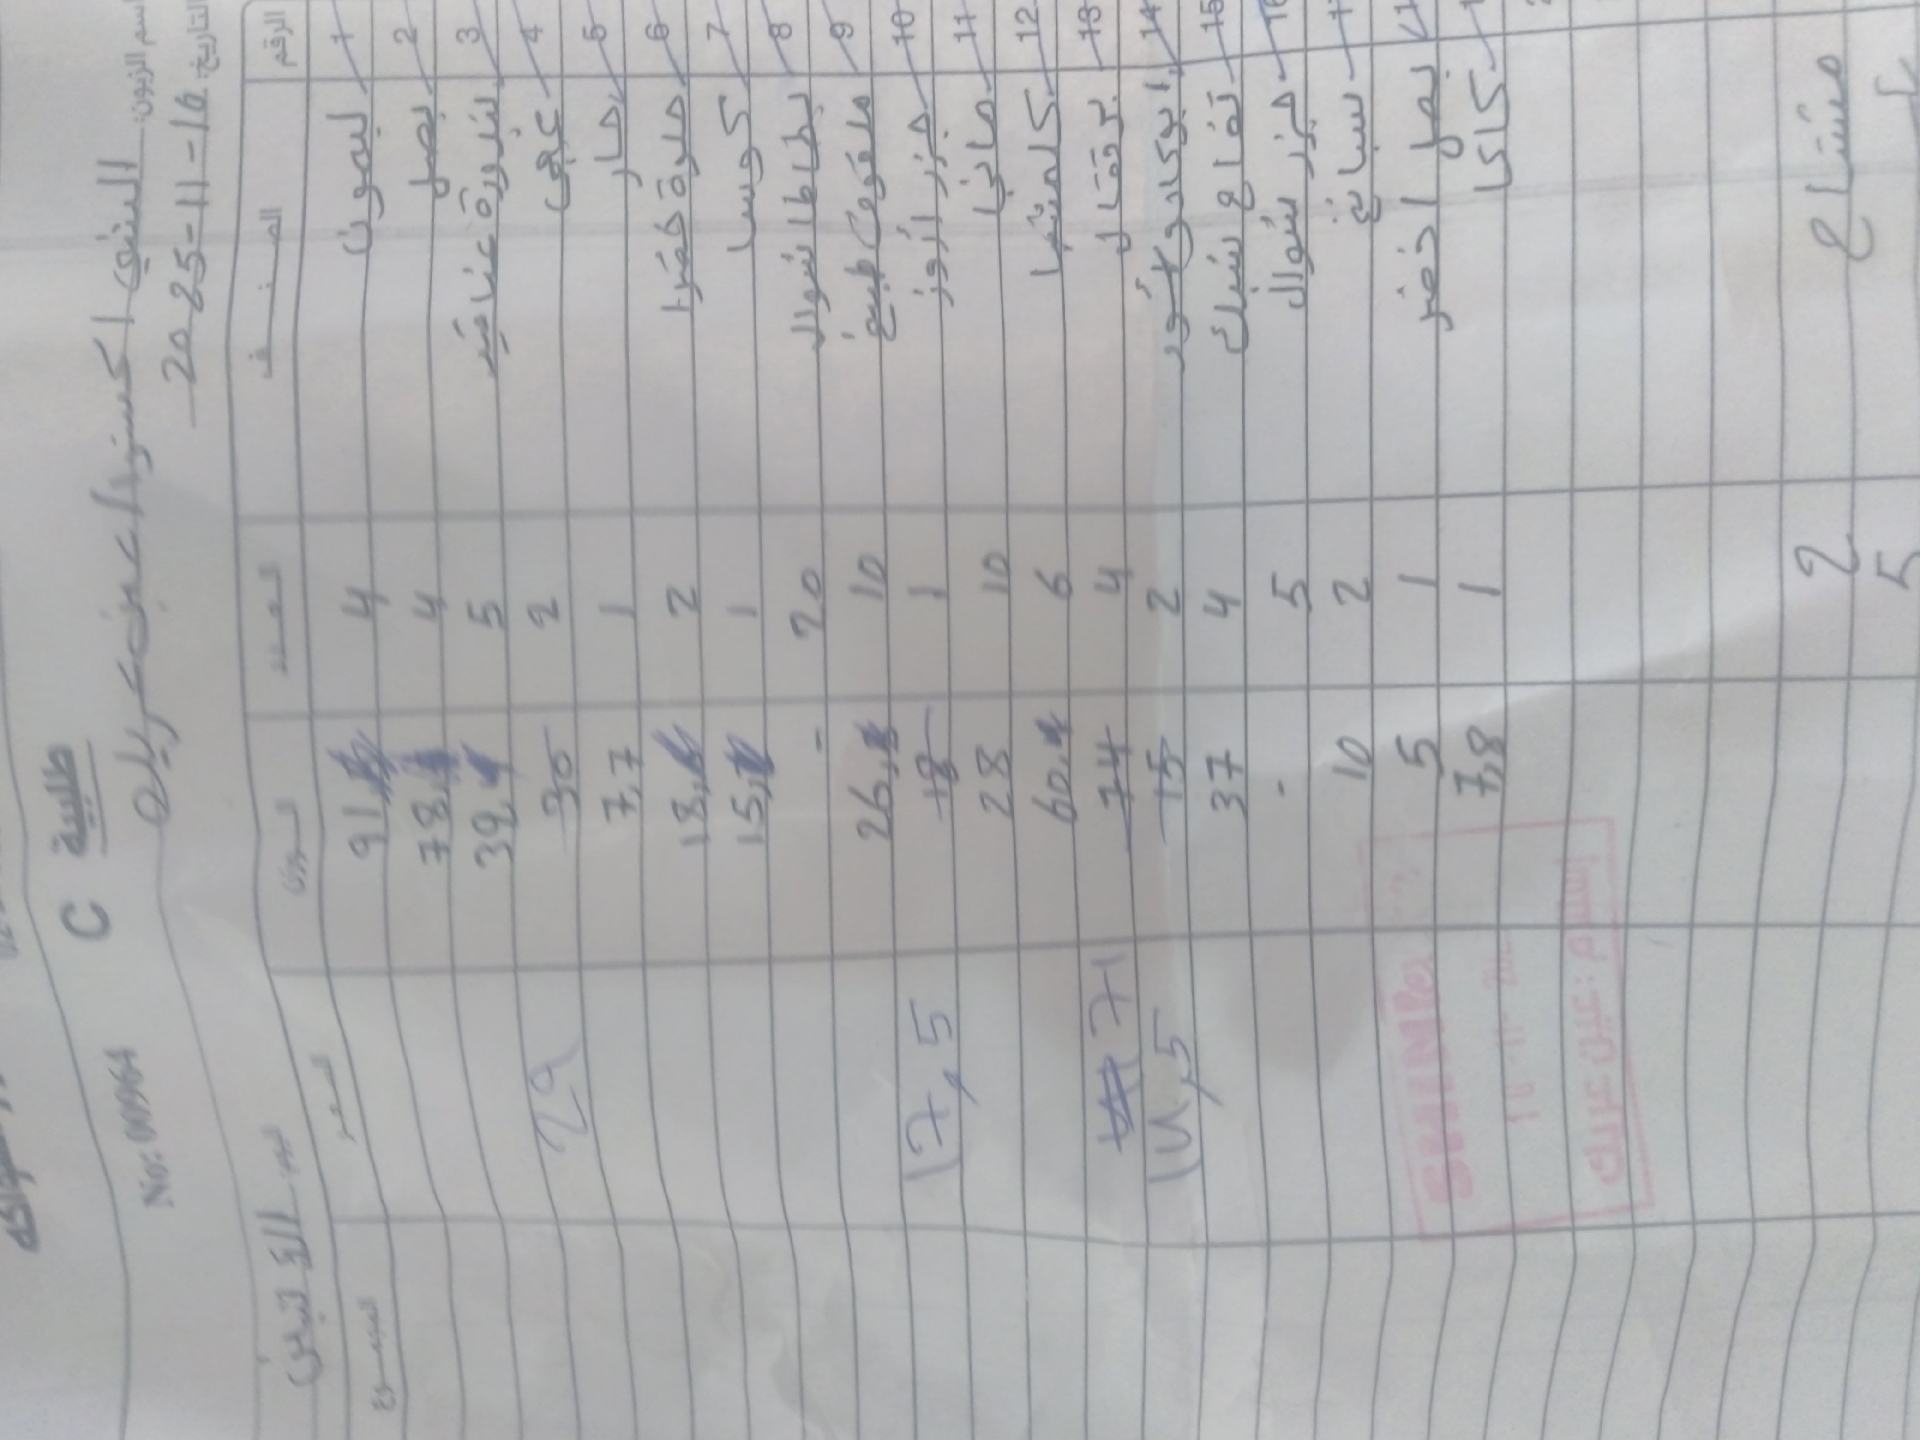 طلبية C
No: 00964
اسم الزبون: السفير اكسترا / عين عريك
التاريخ: 2025-11-16
الرقم الصنف العدد الوزن السعر المجموع
1 ليمون 4 91
2 بصل 4 78
3 بندورة عناقيد 5 39
4 عجمي 2 30 29
5 حار 1 7,7
6 حلوة خضرا 2 18
7 كوسا 1 15
8 بطاطا شوال 20 -
9 ملفوف طبيخ 10 26
10 جزر ارز 1 18 17,5
11 10 28
12 كلمنتينا 6 60
13 برتقال 4 74 71
14 ابوكادو 2 15 14,5
15 تفاح سبارك 4 37
16 جزر شوال 5 -
سبانخ 2 10
بصل اخضر 1 5
كاكا 1 7,8
استلام: عين عريك
مشتاح 2
5